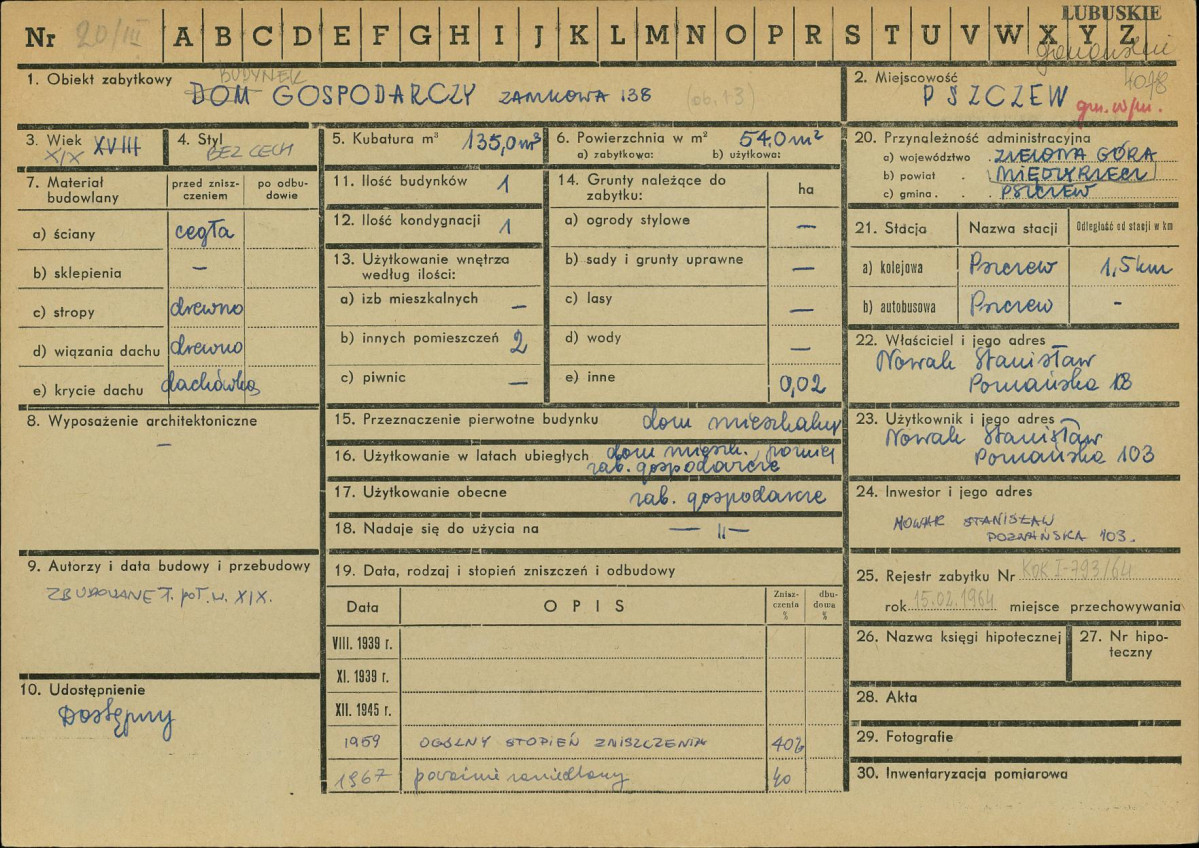 LUBUSKIE
Nr 20/III A B C D E F G H I J K L M N O P R S T U V W X Y Z
1. Obiekt zabytkowy
BUDYNEK
DOM GOSPODARCZY ZAMKOWA 138 (ob. 13)
2. Miejscowość
4078
PSZCZEW
gm. w/m.
3. Wiek XVIII
XIX
4. Styl
BEZ CECH
5. Kubatura m³ 135,0 m³
6. Powierzchnia w m² 54,0 m²
a) zabytkowa: b) użytkowa:
7. Materiał budowlany
przed zniszczeniem
po odbudowie
a) ściany cegła
b) sklepienia –
c) stropy drewno
d) wiązania dachu drewno
e) krycie dachu dachówka
8. Wyposażenie architektoniczne
–
9. Autorzy i data budowy i przebudowy
ZBUDOWANE I. poł. w. XIX.
10. Udostępnienie
Dostępny
11. Ilość budynków 1
12. Ilość kondygnacji 1
13. Użytkowanie wnętrza
według ilości:
a) izb mieszkalnych –
b) innych pomieszczeń 2
c) piwnic –
14. Grunty należące do
zabytku:
ha
a) ogrody stylowe –
b) sady i grunty uprawne –
c) lasy –
d) wody –
e) inne 0,02
15. Przeznaczenie pierwotne budynku dom mieszkalny
16. Użytkowanie w latach ubiegłych dom mieszk., później
zab. gospodarcze
17. Użytkowanie obecne zab. gospodarcze
18. Nadaje się do użycia na — „ —
19. Data, rodzaj i stopień zniszczeń i odbudowy
Data OPIS Zniszczenia % dbudowa %
VIII. 1939 r.
XI. 1939 r.
XII. 1945 r.
1959 OGÓLNY STOPIEŃ ZNISZCZENIA 40%
1967 poważnie zaniedbany 40
20. Przynależność administracyjna
a) województwo ZIELONA GÓRA
b) powiat MIĘDZYRZECZ
c) gmina PSZCZEW
21. Stacja Nazwa stacji Odległość od stacji w km
a) kolejowa Pszczew 1,5 km
b) autobusowa Pszczew -
22. Właściciel i jego adres
Nowak Stanisław
Poznańska
23. Użytkownik i jego adres
Nowak Stanisław
Poznańska 103
24. Inwestor i jego adres
NOWAK STANISŁAW
POZNAŃSKA 103.
25. Rejestr zabytku Nr KOK I-793/64
rok 15.02.1964 miejsce przechowywania
26. Nazwa księgi hipotecznej
27. Nr hipoteczny
28. Akta
29. Fotografie
30. Inwentaryzacja pomiarowa